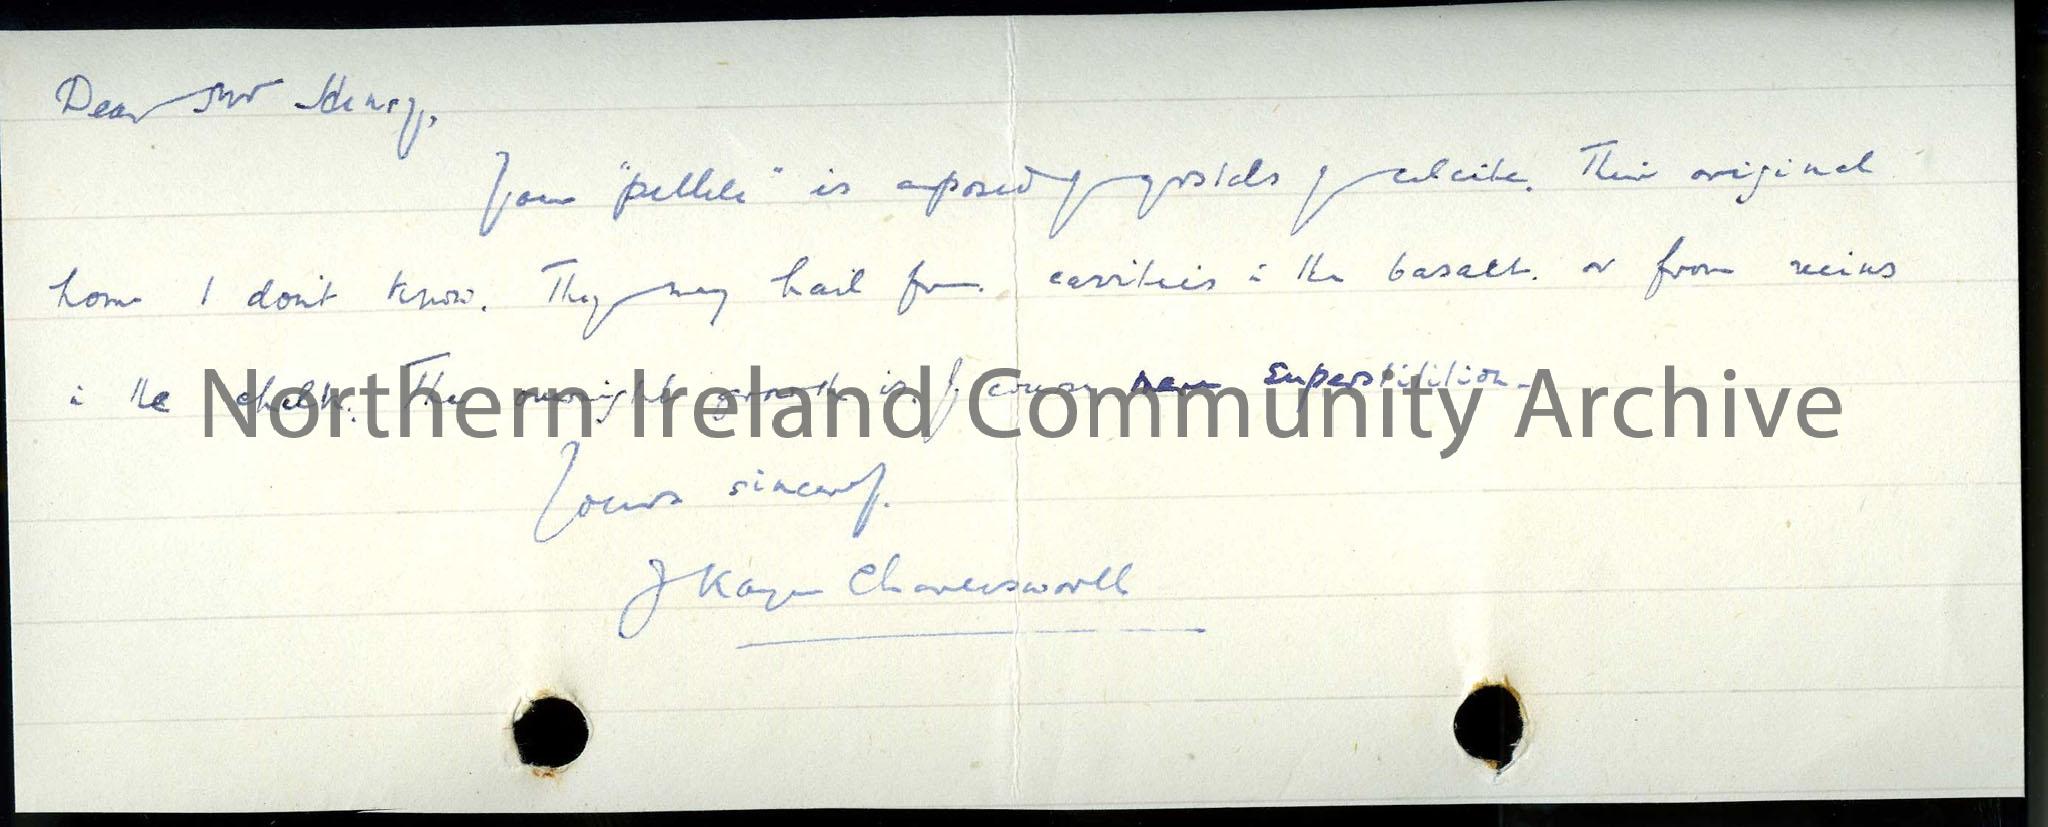 Dear Mr Henry,
Your "pebble" is composed of crystals of calcite. Their original
home I don't know. They may hail from cavities in the basalt. or from veins
in the chalk. The overnight growth is of course mere superstitition.
Northern Ireland Community Archive
Yours sincerely.
J Kaye Charlesworth